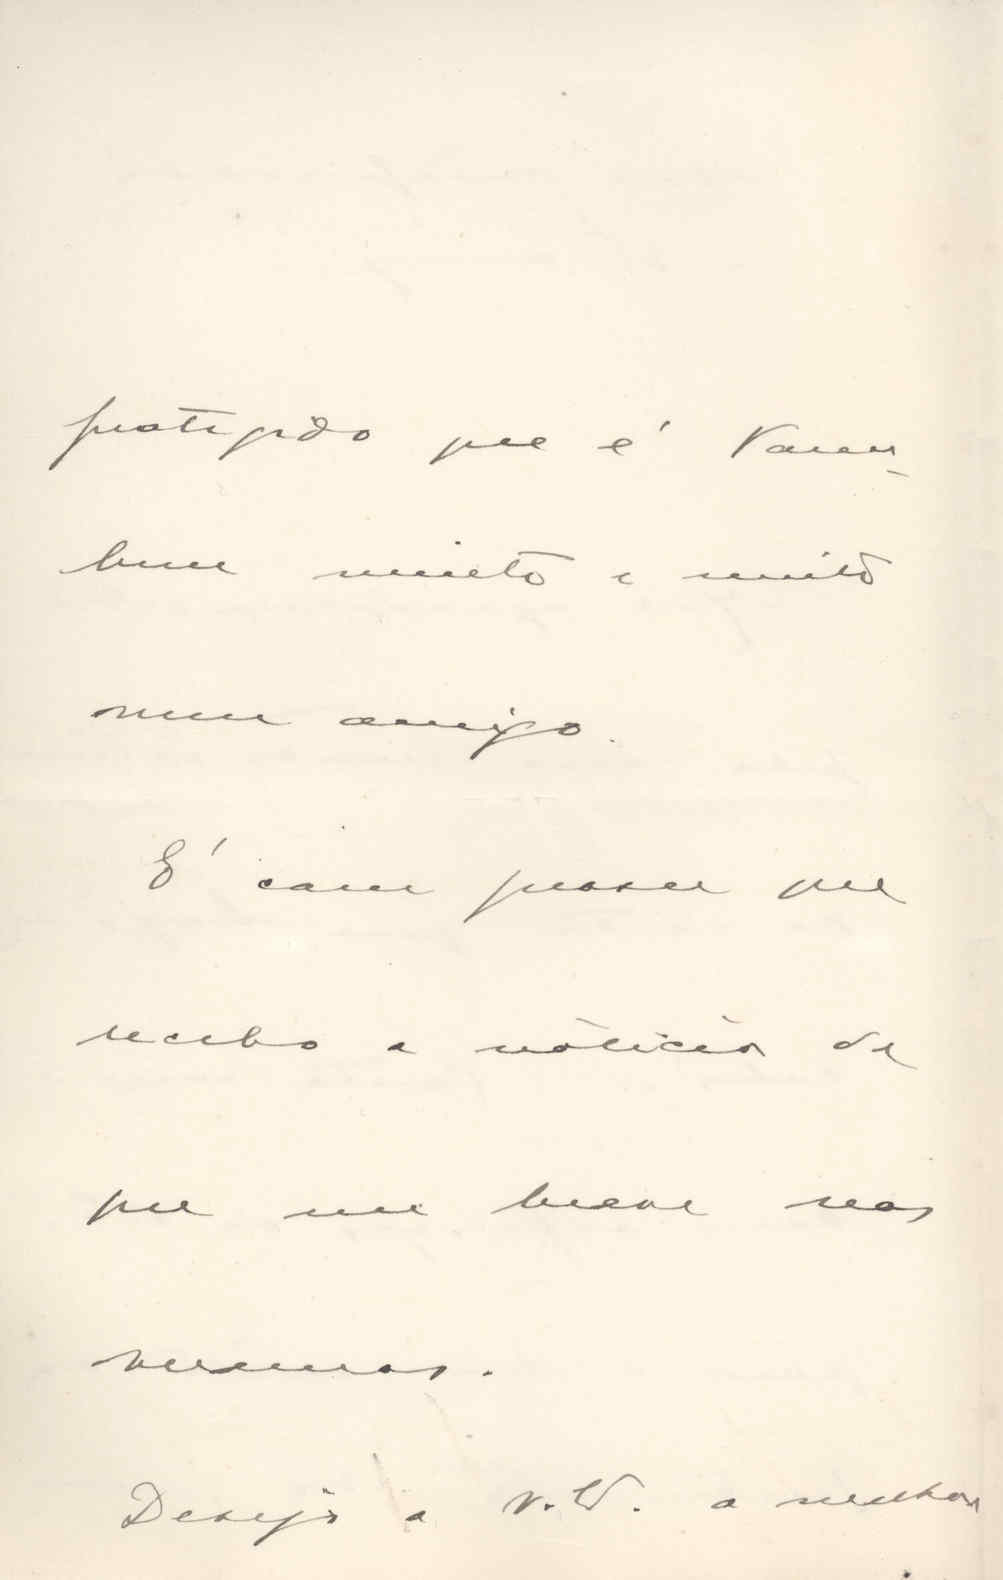 protegido que é tam-
bem muito e muito
meu amigo.
É com praser que
recebo a noticia de
que em breve nos
veremos.
Desejo a V. a melhor